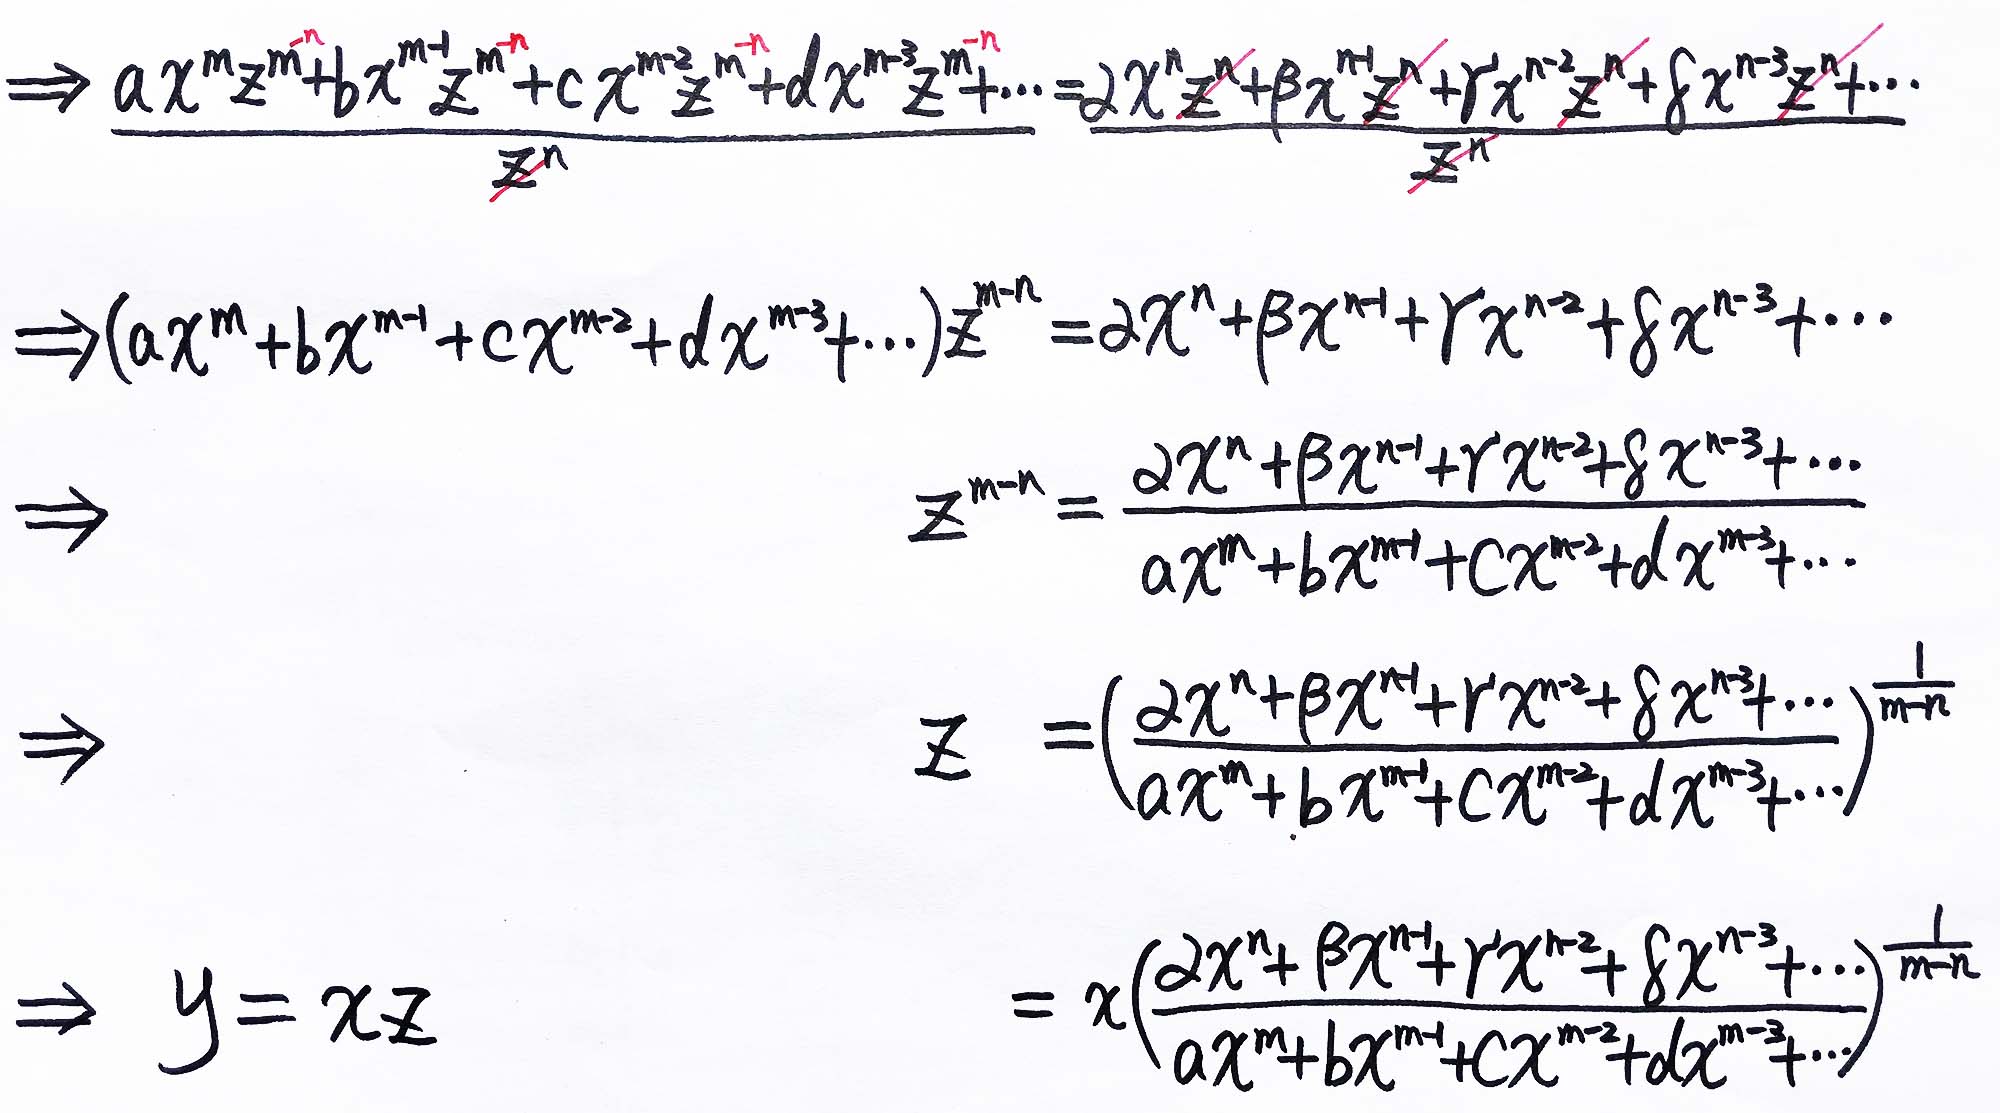 ⇒ (ax^m z^{m-n} + bx^{m-1} z^{m-n} + cx^{m-2} z^{m-n} + dx^{m-3} z^{m-n} + ⋯) / z^n = (αx^n z^n + βx^{n-1} z^n + γx^{n-2} z^n + δx^{n-3} z^n + ⋯) / z^n
⇒ (ax^m + bx^{m-1} + cx^{m-2} + dx^{m-3} + ⋯) z^{m-n} = αx^n + βx^{n-1} + γx^{n-2} + δx^{n-3} + ⋯
⇒ z^{m-n} = (αx^n + βx^{n-1} + γx^{n-2} + δx^{n-3} + ⋯) / (ax^m + bx^{m-1} + cx^{m-2} + dx^{m-3} + ⋯)
⇒ z = ((αx^n + βx^{n-1} + γx^{n-2} + δx^{n-3} + ⋯) / (ax^m + bx^{m-1} + cx^{m-2} + dx^{m-3} + ⋯))^{1/(m-n)}
⇒ y = xz = x((αx^n + βx^{n-1} + γx^{n-2} + δx^{n-3} + ⋯) / (ax^m + bx^{m-1} + cx^{m-2} + dx^{m-3} + ⋯))^{1/(m-n)}